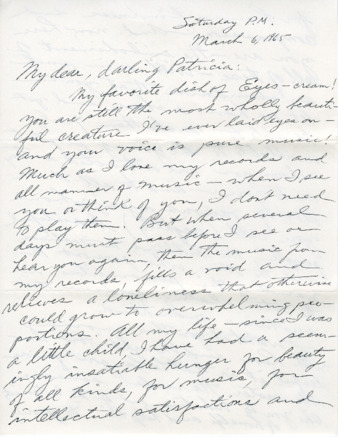 Saturday P.M.
March 6, 1965
My dear, darling Patricia:
My favorite dish of Eyes-cream!
You are still the most wholly beauti-
ful creature I've ever laid eyes on -
and your voice is pure music!
Much as I love my records and
all manner of music - when I see
you or think of you, I don't need
to play them. But when several
days must pass before I see or
hear you again, then the music from
my records, fills a void and
relieves a loneliness that otherwise
could grow to overwhelming pro-
portions. All my life - since I was
a little child, I have had a seem-
ingly insatiable hunger for beauty
of all kinds, for music, for
intellectual satisfactions and